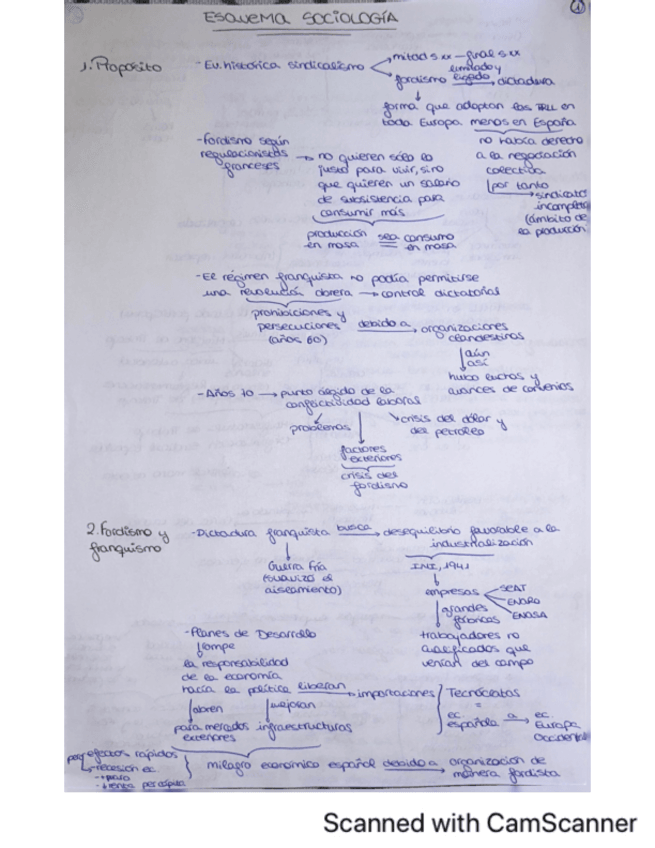 ESQUEMA SOCIOLOGÍA
1
1. Proposito
- Ev. histórica sindicalismo
mitad s.xx - final s.xx
fordismo limitado y ligado dictadura
forma que adoptan las RRLL en
toda Europa menos en España
- Fordismo según
regulacionistas
franceses
no quieren sólo lo
justo para vivir, sino
que quieren un salario
de subsistencia para
consumir más
producción sea consumo
en masa en masa
no había derecho
a la negociación
colectiva
por tanto
sindicato
incompleto
(ámbito de
la producción)
- El régimen franquista no podía permitirse
una revolución obrera → control dictatorial
prohibiciones y
persecuciones
(años 60)
debido a organizaciones
clandestinas
aún
así
hubo luchas y
avances de convenios
- Años 70 → punto álgido de la
conflictividad laboral
problemas
crisis del dólar y
del petróleo
factores
exteriores
crisis del
fordismo
2. Fordismo y
franquismo
- Dictadura franquista busca desequilibrio favorable a la
industrialización
Guerra Fría
(suavizó el
aislamiento)
INI, 1941
empresas
SEAT
ENSASA
grandes
fábricas
trabajadores no
cualificados que
venían del campo
- Planes de Desarrollo
rompe
la responsabilidad
de la economía
hacia la política liberan importaciones
abren
mejoran
para mercados infraestructuras
exteriores
Tecnócratas
=
ec. española a ec. Europa
Occidental
efectos rápidos
recesión ec.
- paro
renta per cápita
milagro económico español debido a organización de
manera fordista
Scanned with CamScanner